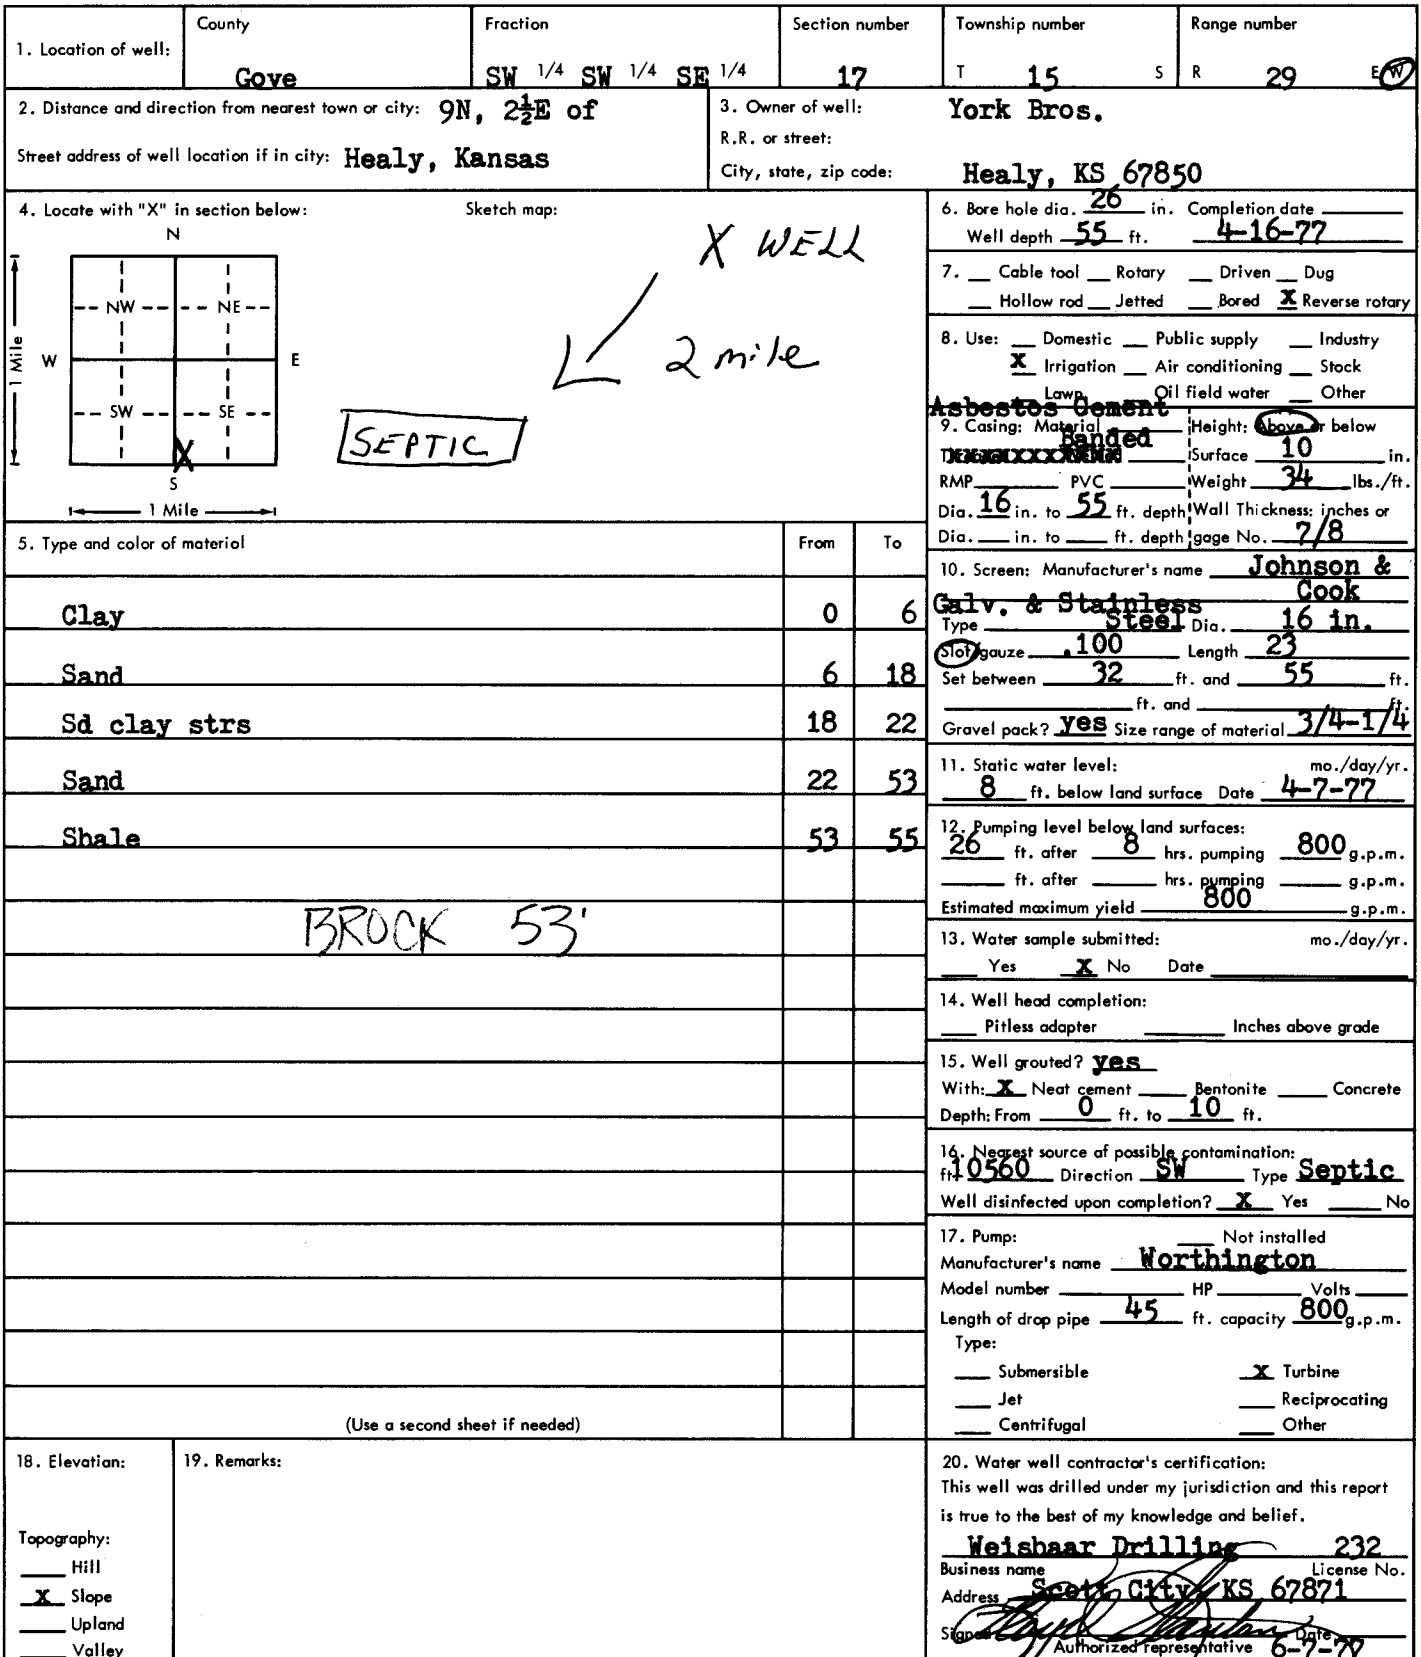 1. Location of well: County Gove Fraction SW 1/4 SW 1/4 SE 1/4 Section number 17 Township number T 15 S Range number R 29 E W
2. Distance and direction from nearest town or city: 9N, 2½E of
Street address of well location if in city: Healy, Kansas
3. Owner of well: York Bros.
R.R. or street:
City, state, zip code: Healy, KS 67850
4. Locate with "X" in section below:
Sketch map:
N
NW NE
W E
SW SE
X
S
1 Mile
1 Mile
X WELL
2 mile
SEPTIC
5. Type and color of material From To
Clay 0 6
Sand 6 18
Sd clay strs 18 22
Sand 22 53
Shale 53 55
BROCK 53'
(Use a second sheet if needed)
6. Bore hole dia. 26 in. Completion date
Well depth 55 ft. 4-16-77
7. Cable tool Rotary Driven Dug
Hollow rod Jetted Bored X Reverse rotary
8. Use: Domestic Public supply Industry
X Irrigation Air conditioning Stock
Lawn Oil field water Other
Asbestos Cement
9. Casing: Material Height: Above or below
Banded
Surface 10 in.
RMP PVC Weight 34 lbs./ft.
Dia. 16 in. to 55 ft. depth Wall Thickness: inches or
Dia. in. to ft. depth gage No. 7/8
10. Screen: Manufacturer's name Johnson &
Cook
Galv. & Stainless
Type Steel Dia. 16 in.
Slot/gauze .100 Length 23
Set between 32 ft. and 55 ft.
ft. and ft.
Gravel pack? yes Size range of material 3/4-1/4
11. Static water level: mo./day/yr.
8 ft. below land surface Date 4-7-77
12. Pumping level below land surfaces:
26 ft. after 8 hrs. pumping 800 g.p.m.
ft. after hrs. pumping g.p.m.
Estimated maximum yield 800 g.p.m.
13. Water sample submitted: mo./day/yr.
Yes X No Date
14. Well head completion:
Pitless adapter Inches above grade
15. Well grouted? yes
With: X Neat cement Bentonite Concrete
Depth: From 0 ft. to 10 ft.
16. Nearest source of possible contamination:
ft. 10560 Direction SW Type Septic
Well disinfected upon completion? X Yes No
17. Pump: Not installed
Manufacturer's name Worthington
Model number HP Volts
Length of drop pipe 45 ft. capacity 800 g.p.m.
Type:
Submersible X Turbine
Jet Reciprocating
Centrifugal Other
18. Elevation:
Topography:
Hill
X Slope
Upland
Valley
19. Remarks:
20. Water well contractor's certification:
This well was drilled under my jurisdiction and this report
is true to the best of my knowledge and belief.
Weishaar Drilling 232
Business name License No.
Address Scott City, KS 67871
Signed Date
Authorized representative 6-7-77